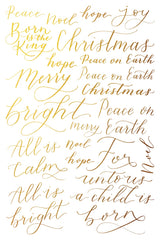 Peace Noel hope joy
Born is the King
Christmas
hope Peace on Earth
Merry Peace on Earth
Christmas
bright Peace on Earth
merry
All is Calm
noel
hope
Noel
For unto us a child is born
All is bright